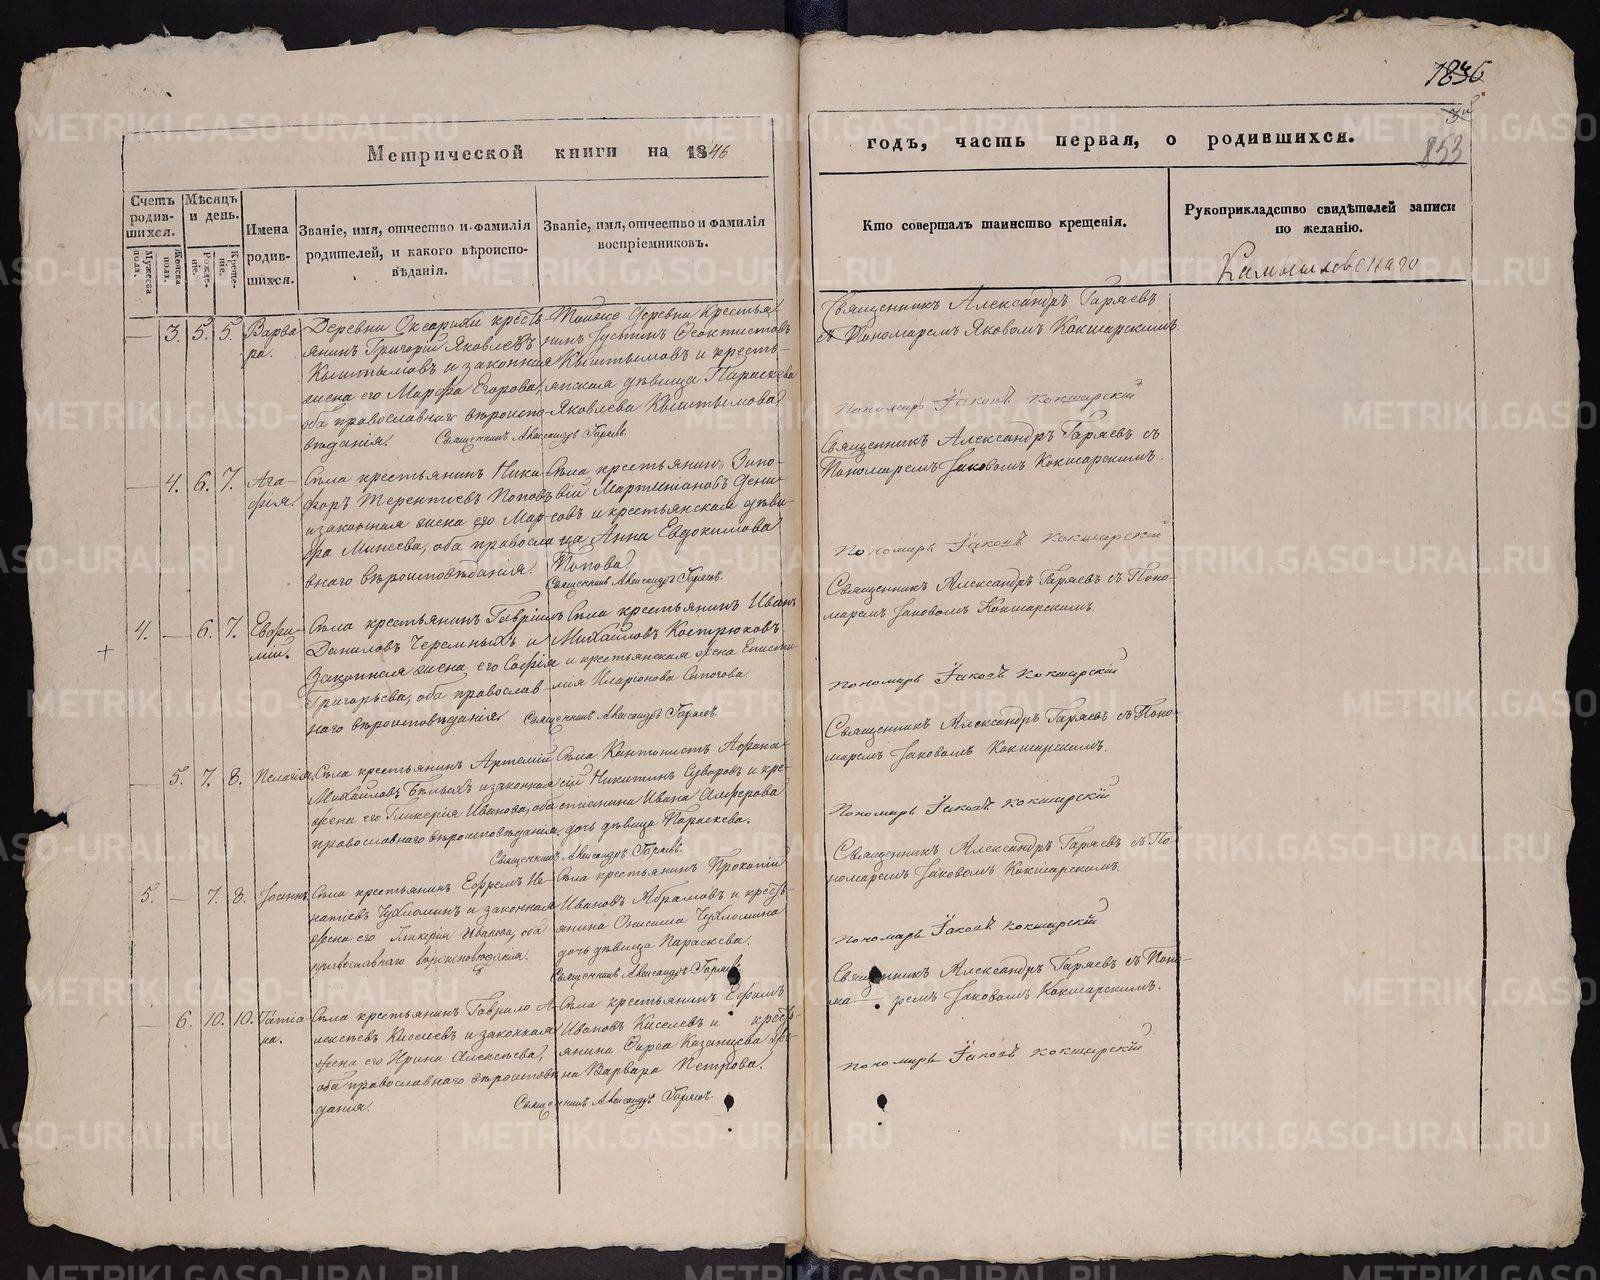 1836
853
Метрической книги на 1846
годъ, часть первая, о родившихся.
Счетъ родив-шихся.
Мѣсяцъ и день.
Имена родив-шихся.
Званіе, имя, отчество и фамилія родителей, и какого вѣроиспо-вѣданія.
Званіе, имя, отчество и фамилія воспріемниковъ.
Мужеска полл.
Женска полл.
Рожде-ніе.
Креще-ніе.
Кто совершалъ таинство крещенія.
Рукоприкладство свидѣтелей записи по желанію.
Камышловскаго
3. 5. 5. Варва-
ра.
Деревни Оксарихи кресть-
янинъ Григорій Яковлевъ
Кыштымовъ и законная
жена его Марфа Егорова,
оба православнаго вѣроиспо-
вѣданія.
Тойже деревни крестья-
нинъ Іустинъ Ѳеоктистовъ
Кыштымовъ и кресть-
янская дѣвица Параскева
Яковлева Кыштымова.
Священникъ Александръ Гаряевъ.
Священникъ Александръ Гаряевъ
съ Пономаремъ Яковомъ Кокшарскимъ.
Пономарь Іаковъ Кокшарскій
4. 6. 7. Ага-
фія.
Села крестьянинъ Ники-
форъ Терентіевъ Поповъ
и законная жена его Мар-
фа Минеева, оба правосла-
внаго вѣроисповѣданія.
Села крестьянинъ Зино-
вій Мартиніановъ Дени-
совъ и крестьянская дѣви-
ца Анна Евдокимова
Попова.
Священникъ Александръ Гаряевъ.
Священникъ Александръ Гаряевъ съ
Пономаремъ Іаковомъ Кокшарскимъ.
Пономарь Іаковъ Кокшарскій
4. 6. 7. Евфи-
мій.
Села крестьянинъ Гавріилъ
Даниловъ Черемныхъ и
Законная жена его Софія
Григорьева, оба православ-
наго вѣроисповѣданія.
Села крестьянинъ Иванъ
Михайловъ Кострюковъ
и крестьянская жена Еписти-
мія Иларіонова Сапогова.
Священникъ Александръ Гаряевъ.
Священникъ Александръ Гаряевъ съ Поно-
маремъ Іаковомъ Кокшарскимъ.
Пономарь Іаковъ Кокшарскій
5. 7. 8. Пелагія.
Села крестьянинъ Артемій
Михайловъ Бѣлыхъ и законная
жена его Гликерія Иванова, оба
православнаго вѣроисповѣданія.
Села Кантонистъ Афана-
сій Никитинъ Суворовъ и кре-
стьянина Ивана Алферова
дочь дѣвица Параскева.
Священникъ Александръ Гаряевъ.
Священникъ Александръ Гаряевъ съ Поно-
маремъ Іаковомъ Кокшарскимъ.
Пономарь Іаковъ Кокшарскій
5. 7. 8. Іоаннъ.
Села крестьянинъ Ефремъ Иг-
натіевъ Чухломинъ и законная
жена его Гликерія Иванова, оба
православнаго вѣроисповѣданія.
Села крестьянинъ Прокопій
Ивановъ Абрамовъ и кресть-
янина Онисима Чухломина
дочь дѣвица Параскева.
Священникъ Александръ Гаряевъ.
Священникъ Александръ Гаряевъ съ По-
номаремъ Іаковомъ Кокшарскимъ.
Пономарь Іаковъ Кокшарскій
6. 10. 10. Татіа-
на.
Села крестьянинъ Гаврило А-
лексѣевъ Киселевъ и законная
жена его Ирина Алексѣева,
оба православнаго вѣроисповѣ-
данія.
Села крестьянинъ Ефимъ
Ивановъ Киселевъ и кресть-
янина Фирса Казанцева же-
на Варвара Петрова.
Священникъ Александръ Гаряевъ.
Священникъ Александръ Гаряевъ съ Поно-
ма-ремъ Іаковомъ Кокшарскимъ.
Пономарь Іаковъ Кокшарскій
METRIKI.GASO-URAL.RU